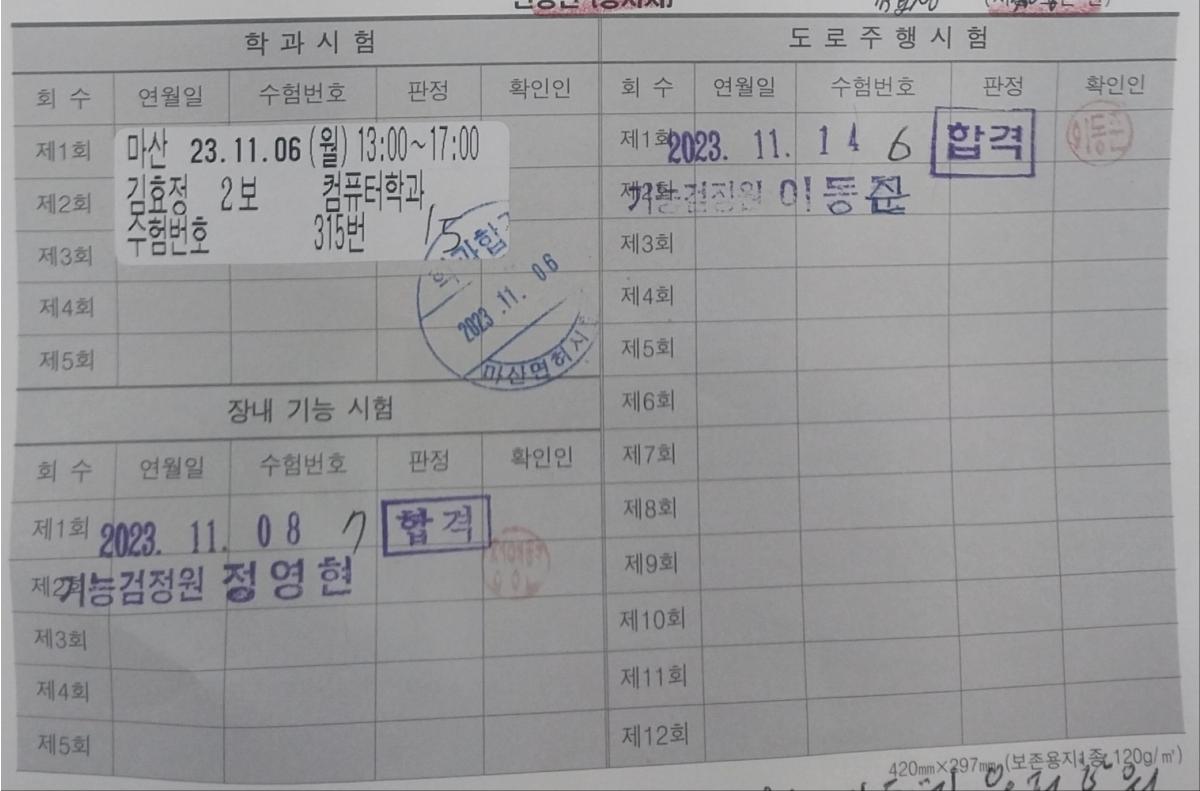 학 과 시 험
회 수 연월일 수험번호 판정 확인인
제1회
제2회
제3회
제4회
제5회
마산 23.11.06 (월) 13:00~17:00
김효정 2보 컴퓨터학과
수험번호 315번
2023.11. 06
마산면허시
장내 기능 시험
회 수 연월일 수험번호 판정 확인인
제1회 2023. 11. 08 7 합격
제2회 기능검정원 정영현
제3회
제4회
제5회
도 로 주 행 시 험
회 수 연월일 수험번호 판정 확인인
제1회 2023. 11. 14 6 합격 이동준
제2회 기능검정원 이동준
제3회
제4회
제5회
제6회
제7회
제8회
제9회
제10회
제11회
제12회
420㎜×297㎜ (보존용지1종 120g/㎡)